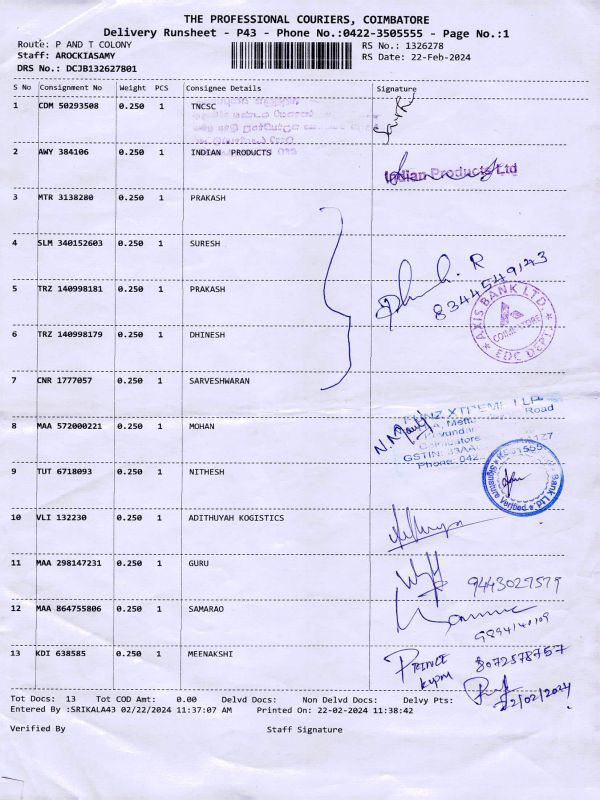 THE PROFESSIONAL COURIERS, COIMBATORE
Delivery Runsheet - P43 - Phone No.:0422-3505555 - Page No.:1
Route: P AND T COLONY
RS No.: 1326278
Staff: AROCKIASAMY
RS Date: 22-Feb-2024
DRS No.: DCJB132627801
S No Consignment No Weight PCS Consignee Details Signature
1 CDM 50293508 0.250 1 TNCSC
2 AWY 384106 0.250 1 INDIAN PRODUCTS
Indian Products Ltd
3 MTR 3138280 0.250 1 PRAKASH
4 SLM 340152603 0.250 1 SURESH
8344549143
5 TRZ 140998181 0.250 1 PRAKASH
AXIS BANK LTD.
COIMBATORE
EDC DEPT.
6 TRZ 140998179 0.250 1 DHINESH
7 CNR 1777057 0.250 1 SARVESHWARAN
8 MAA 572000221 0.250 1 MOHAN
XTREME LLP
Road
Coimbatore
GSTIN: 33AA
Phone: 042
9 TUT 6718093 0.250 1 NITHESH
Signature Verified
Bank Ltd
10 VLI 132230 0.250 1 ADITHUYAH KOGISTICS
11 MAA 298147231 0.250 1 GURU
9443027579
12 MAA 864755806 0.250 1 SAMARAO
9894140109
13 KDI 638585 0.250 1 MEENAKSHI
PRINCE
8072578757
22/02/2024
Tot Docs: 13 Tot COD Amt: 0.00 Delvd Docs: Non Delvd Docs: Delvy Pts:
Entered By :SRIKALA43 02/22/2024 11:37:07 AM Printed On: 22-02-2024 11:38:42
Verified By Staff Signature